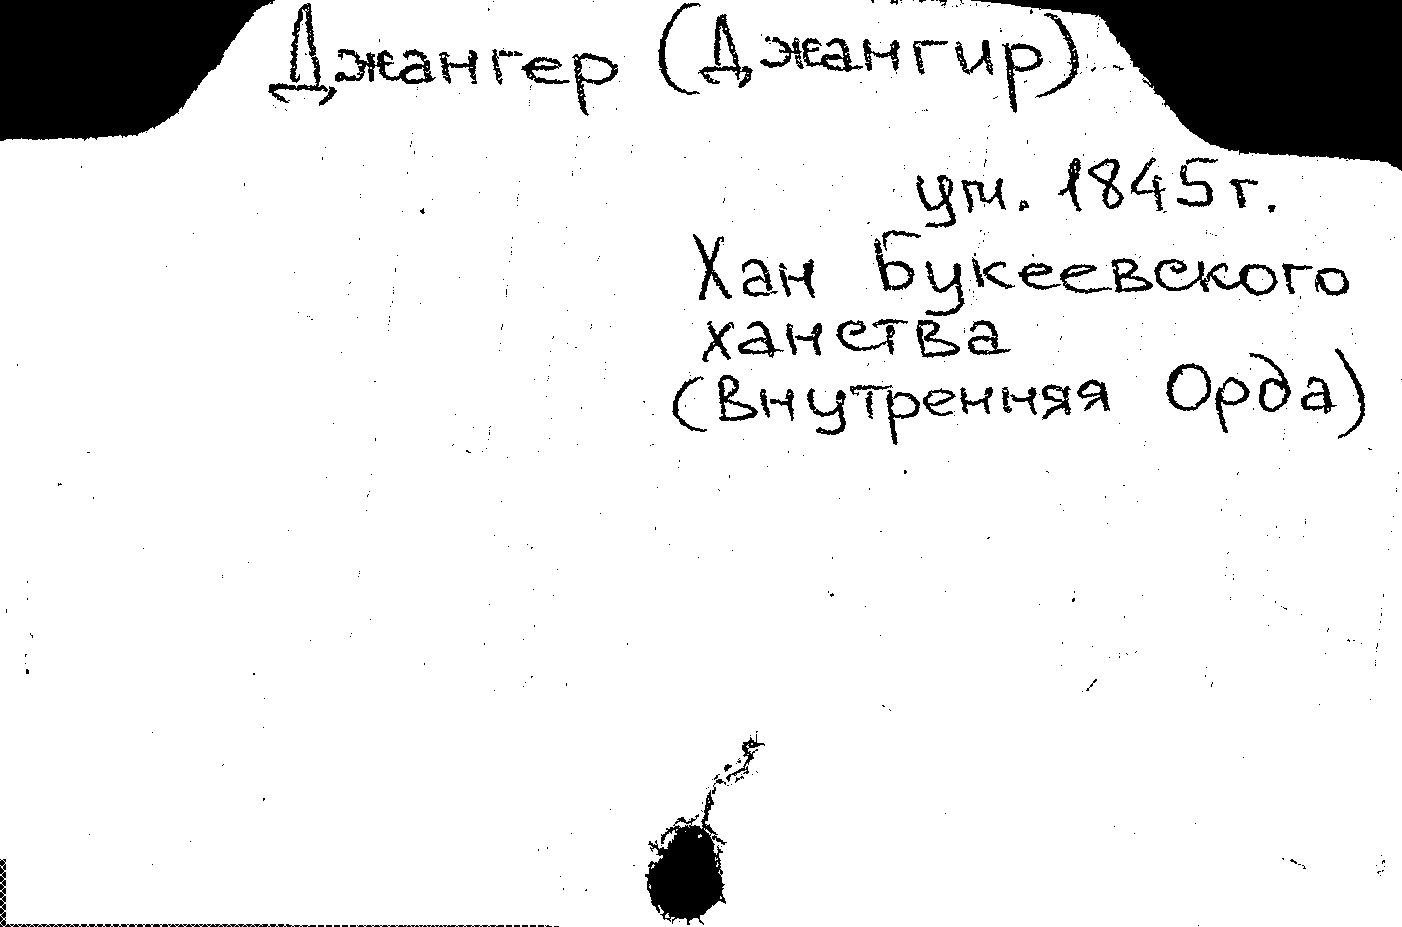 Джангер (Джангир)
ум. 1845 г.
Хан Букеевского
ханства
(Внутренняя Орда)